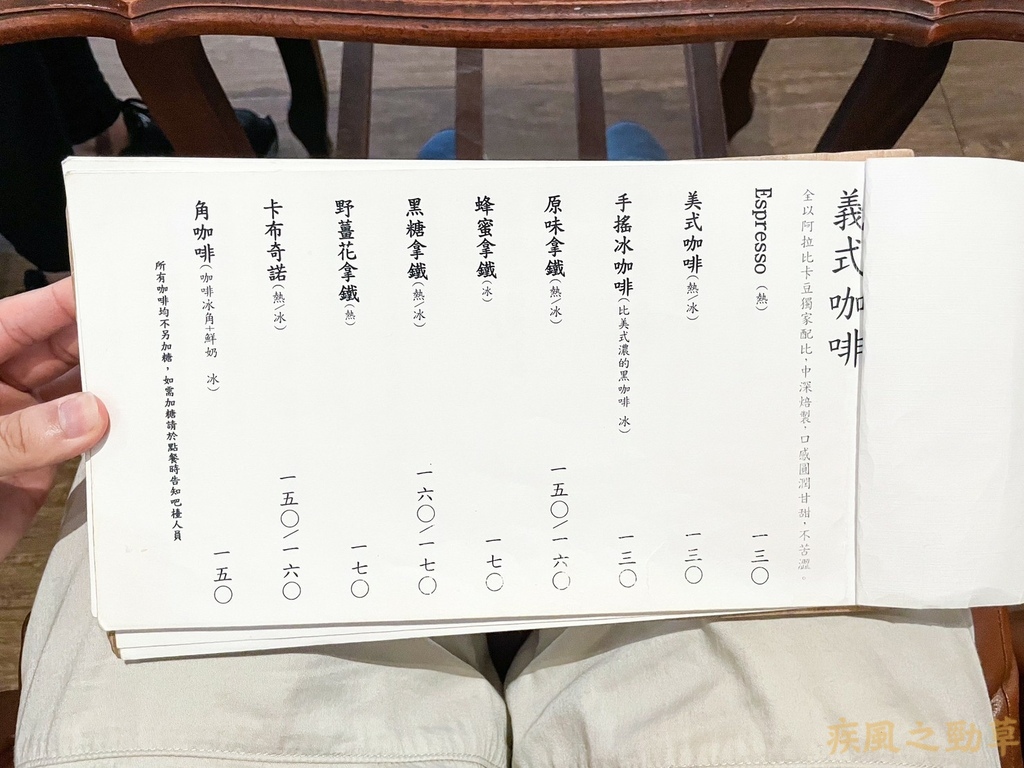 義式咖啡
全以阿拉比卡豆獨家配比,中深焙製,口感圓潤甘甜,不苦澀。
Espresso(熱) 一三〇
美式咖啡(熱/冰) 一三〇
手搖冰咖啡(比美式濃的黑咖啡 冰) 一三〇
原味拿鐵(熱/冰) 一五〇/一六〇
蜂蜜拿鐵(冰) 一七〇
黑糖拿鐵(熱/冰) 一六〇/一七〇
野薑花拿鐵(熱) 一七〇
卡布奇諾(熱/冰) 一五〇/一六〇
角咖啡(咖啡冰角+鮮奶 冰) 一五〇
所有咖啡均不另加糖,如需加糖請於點餐時告知吧檯人員
疾風之勁草